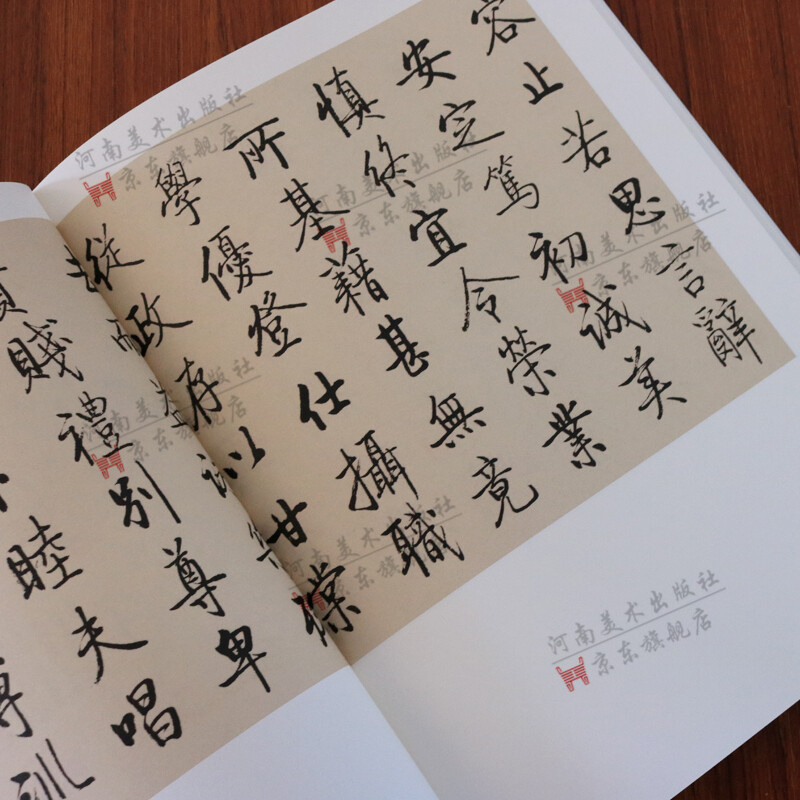 容止若思言辭
安定篤初誠美
慎終宜令榮業
所基藉甚無竟
學優登仕攝職
從政存以甘棠
賤禮別尊卑
睦夫唱
訓
河南美术出版社
京东旗舰店
河南美术出版社
京东旗舰店
河南美术出版社
京东旗舰店
河南美术出版社
京东旗舰店
河南美术出版社
京东旗舰店
河南美术出版社
京东旗舰店